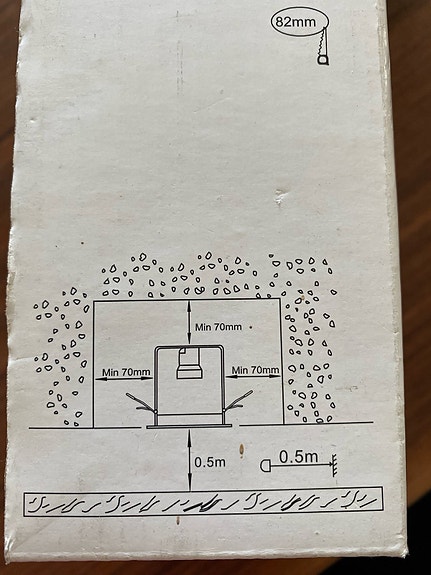 82mm
Min 70mm
Min 70mm
Min 70mm
0.5m
0.5m